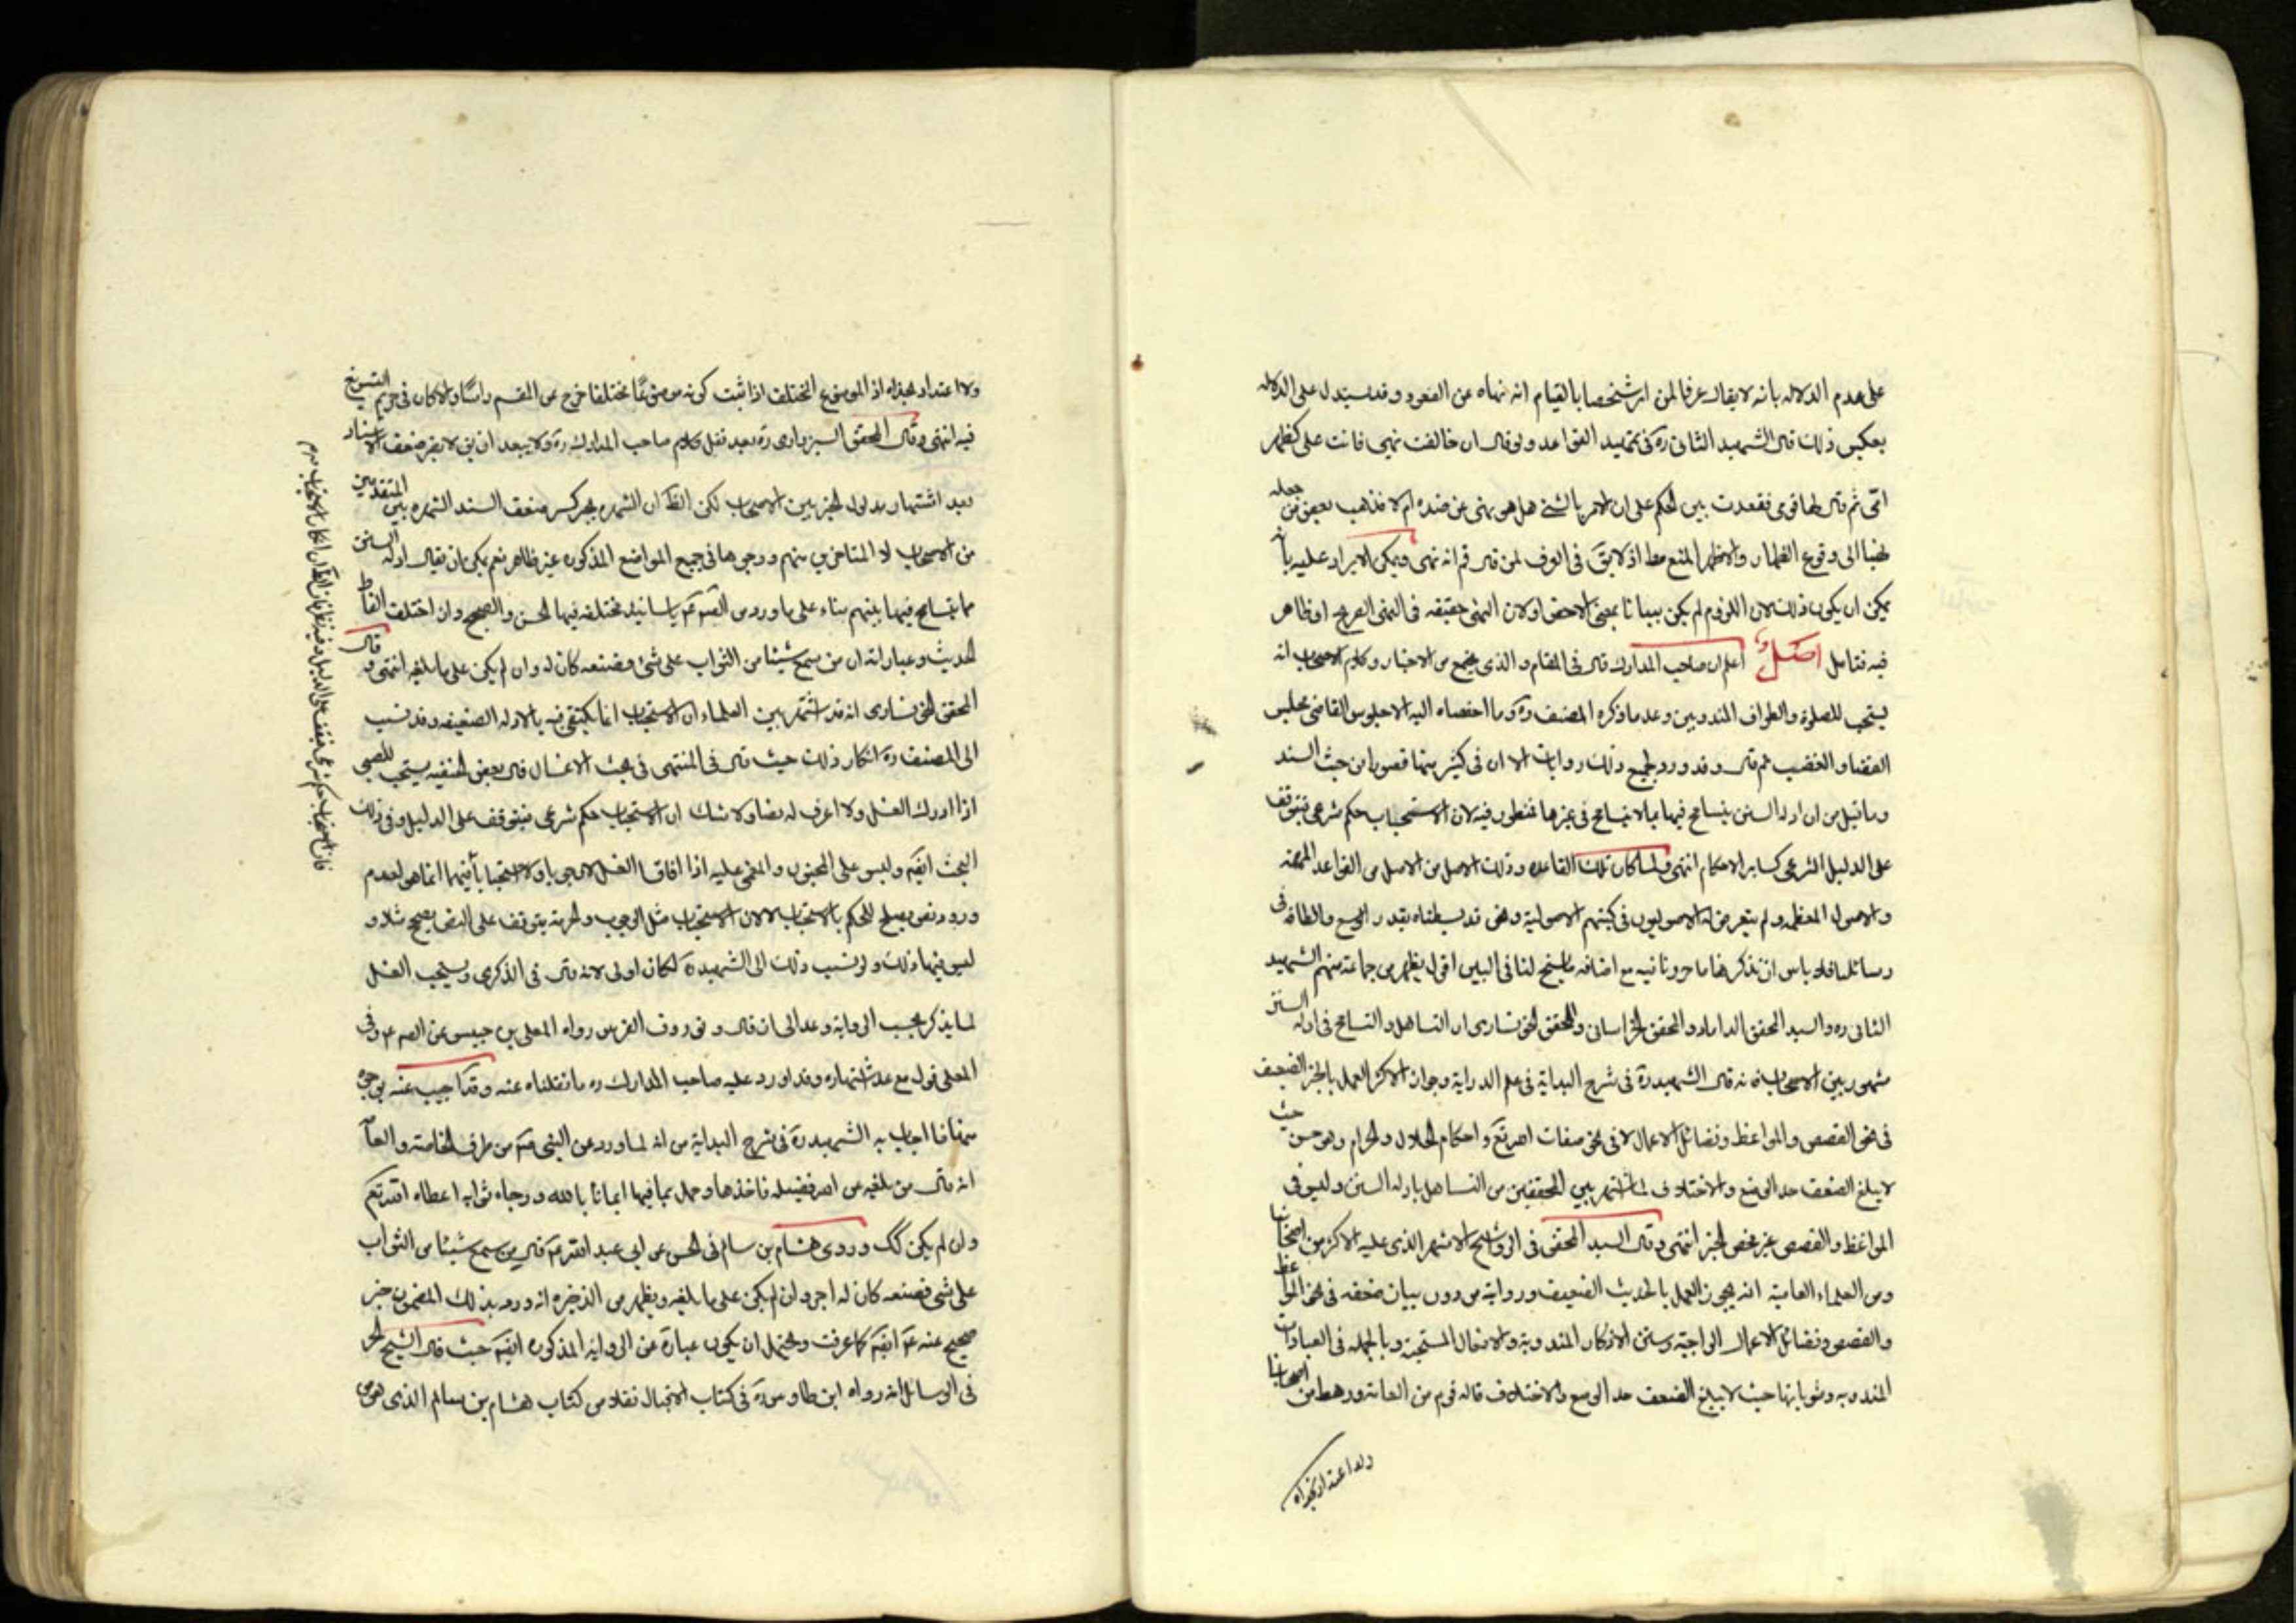 على عدم الدلاله بانه لا يقال عرفا لمن امر شخصا بالقيام انه نهاه عن القعود وقد يستدل على الدلاله
بعكس ذلك قال الشهيد الثانى ره فى تمهيد القواعد ولو قال ان خالفت نهيى فانت على كظهر
امى ثم قال لها قومى فقعدت بين الحكم على ان الامر بالشئ هل هو نهى عن ضده ام لا فذهب بعض من جعله
نهيا الى وقوع الظهار والاظهر المنع مط اذ لا يق فى العرف لمن قال قم انه نهى ويمكن الايراد عليه بانه
يمكن ان يكون ذلك لان اللزوم لم يكن بينا بالمعنى الاخص او لان النهى حقيقه فى النهى الصريح او ظاهر
فيه فتامل اصل اعلم ان صاحب المدارك قال فى المقام والذى يجتمع من الاخبار وكلام الاصحاب انه
يستحب للصلوة والطواف المندوبين وعد ما ذكره المصنف ره وما اضفناه اليه الا جلوس القاضى مجلس
القضا والغضب ثم قال وقد ورد بجميع ذلك روايات الا ان فى كثير منها قصورا من حيث السند
وما قيل من ان ادله السنن يتسامح فيها بما لا يتسامح فى غيرها فمنظور فيه لان الاستحباب حكم شرعى فيتوقف
على الدليل الشرعى كساير الاحكام انتهى ولما كان تلك القاعده وذلك الاصل من الاصل من القواعد المهمه
والاصول المعظمه ولم يتعرض له الاصوليون فى كتبهم الاصولية ونحن قد بسطناه بقدر الوسع والطاقه فى
رسائلنا فلا باس ان نذكر هنا ما حررنا فيه مع اضافه ما سنح لنا فى البين اقول يظهر من جماعة منهم الشهيد
الثانى ره والسيد المحقق الداماد والمحقق الخراسانى والمحقق الخونسارى ان التساهل والتسامح فى ادله السنن
مشهور بين الاصحاب فانه قال الشهيد ره فى شرح البداية فى علم الدراية وجوز الاكثر العمل بالخبر الضعيف
فى نحو القصص والمواعظ وفضائل الاعمال لا فى نحو صفات الله تع واحكام الحلال والحرام وهو حسن حيث
لا يبلغ الضعف حد الوضع والاختلاف لما اشتهر بين المحققين من التساهل بادله السنن وليس فى
المواعظ والقصص غير محض الخبر انتهى وقال السيد المحقق فى الرواشح الاشهر الذى عليه الاكثر من اصحابنا
ومن العلماء العامية انه يجوز العمل بالحديث الضعيف وروايته من دون بيان ضعفه فى نحو المواعظ
والقصص وفضائل الاعمال الواجبة وسنن الاذكار المندوبة والافعال المستحبة وبالجمله فى العبادات
المندوبه ومثوباتها حيث لا يبلغ الضعف حد الوضع والاختلاف قاله قوم من العامة ورهط من اصحابنا
ولا اعتداد بهذاه
ولا اعتداد بهذاه اذ الموضوع المختلف اذا ثبت كونه موضوعا مختلفا خرج عن المقسم راسا والا كان فى حريم التسويغ
فيه انتهى وقال المحقق السبزوارى ره بعد نقل كلام صاحب المدارك ره ولا يبعد ان يق لا يضر ضعف الاسناد
بعد اشتهار مدلول الخبر بين الاصحاب لكن الظ ان الشهره يجبر كسر ضعف السند الشهره بين المتقدمين
من الاصحاب لا المتاخرين منهم ووجوها فى جميع المواضع المذكوره غير ظاهر نعم يمكن ان يقال ادله السنن
مما يتسامح فيها بينهم بناء على ما ورد من الصم عم باسانيد مختلفه فيها الحسن والصحيح وان اختلف الفاظ
الحديث وعباراته ان من سمع شيئا من الثواب على شئ وصنعه كان له وان لم يكن على ما بلغه انتهى وقال
المحقق الخونسارى انه قد اشتهر بين العلماء ان الاستحباب انما يكتفى فيه بالادله الضعيفه وقد نسب
الى المصنف ره انكار ذلك حيث قال فى المنتهى فى بحث الاغسال قال بعض الحنفيه يستحب للصبى
اذا ادرك الغسل ولا اعرف له نصا ولا شك ان الاستحباب حكم شرعى فيتوقف على الدليل وفى ذلك
البحث ايضا وليس على المجنون والمغمى عليه اذا افاقا الغسل لا وجوبا ولا استحبابا فيهما انما هو لعدم
ورود نص يصلح للحكم بالاستحباب لا لان الاستحباب مثل الوجوب والحرمة يتوقف على النص صحيح مثلا و
ليس فيها ذلك ولو نسب ذلك الى الشهيد ره لكان اولى لانه قال فى الذكرى ويستحب الغسل
لما يذكر بحسب الرواية وعد الى ان قال ونوروز الفرس رواه المعلى بن خنيس عن الصم عم وفى
المعلى قول مع عدم اشتهاره وقد اورد عليه صاحب المدارك ره ما نقلناه عنه وقد اجيب عنه بوجوه
منها ما اجاب به الشهيد ره فى شرح البداية من انه لما ورد عن النبى صم من طرف الخاصة والعامة
انه قال من بلغه من الله فضيله فاخذها وعمل بما فيها ايمانا بالله ورجاء ثوابه اعطاه الله تعم
وان لم يكن كك وروى هشام بن سالم فى الحسن عن ابى عبد الله عم قال من سمع شيئا من الثواب
على شئ فصنعه كان له اجره وان لم يكن على ما بلغه ويظهر من الذخيره انه ورد بذلك المضمون خبر
صحيح عنه عم ايضا كما عرفت ويحتمل ان يكون عبارة عن الرواية المذكوره ايضا حيث قال الشيخ الحر
فى الوسائل انه رواه ابن طاوس ره فى كتاب الاقبال نقلا من كتاب هشام بن سالم الذى هو من
فان الاستحباب حكم شرعى فيقف على الدليل وفيه نظر فان الظ ان انكار الاستحباب